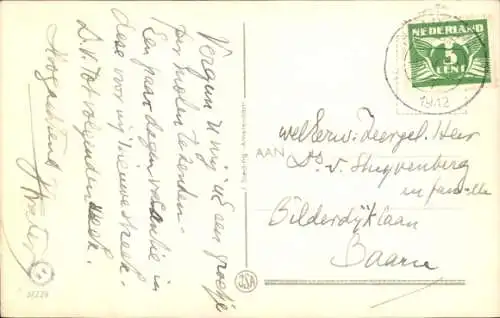 Vergun U mij U een groetje
per molen te zenden.
Een paar dagen vacantie in
deze voor mij nieuwe streek.
D.V. tot volgende week.
Hoogachtend
NEDERLAND
5
CENT
1942
AAN
Welkerw. Zeergel. Heer
Ds. v. Stuyvenberg
en familie
Bilderdijklaan
Baarn